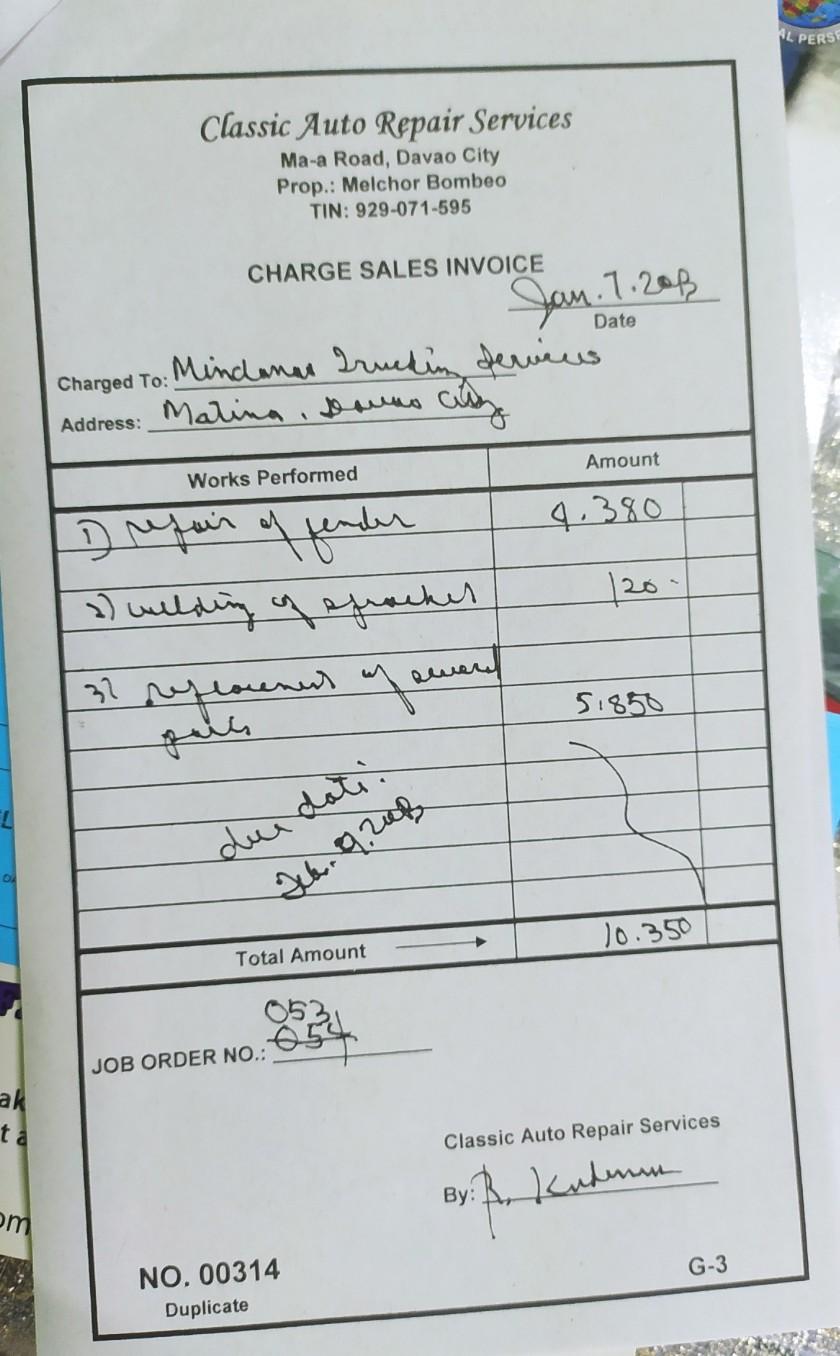 AL PERS
Classic Auto Repair Services
Ma-a Road, Davao City
Prop.: Melchor Bombeo
TIN: 929-071-595
CHARGE SALES INVOICE
Jan. 7. 2013
Date
Charged To: Mindanao Truckin Services
Address: Matina, Davao City
Works Performed Amount
1) repair of fender 4.380
2) welding of sprocket 120-
3) replacement of several
parts 5.850
due date:
Feb. 9. 2013
Total Amount 10.350
053
JOB ORDER NO.: 054
Classic Auto Repair Services
By: R.
NO. 00314 G-3
Duplicate